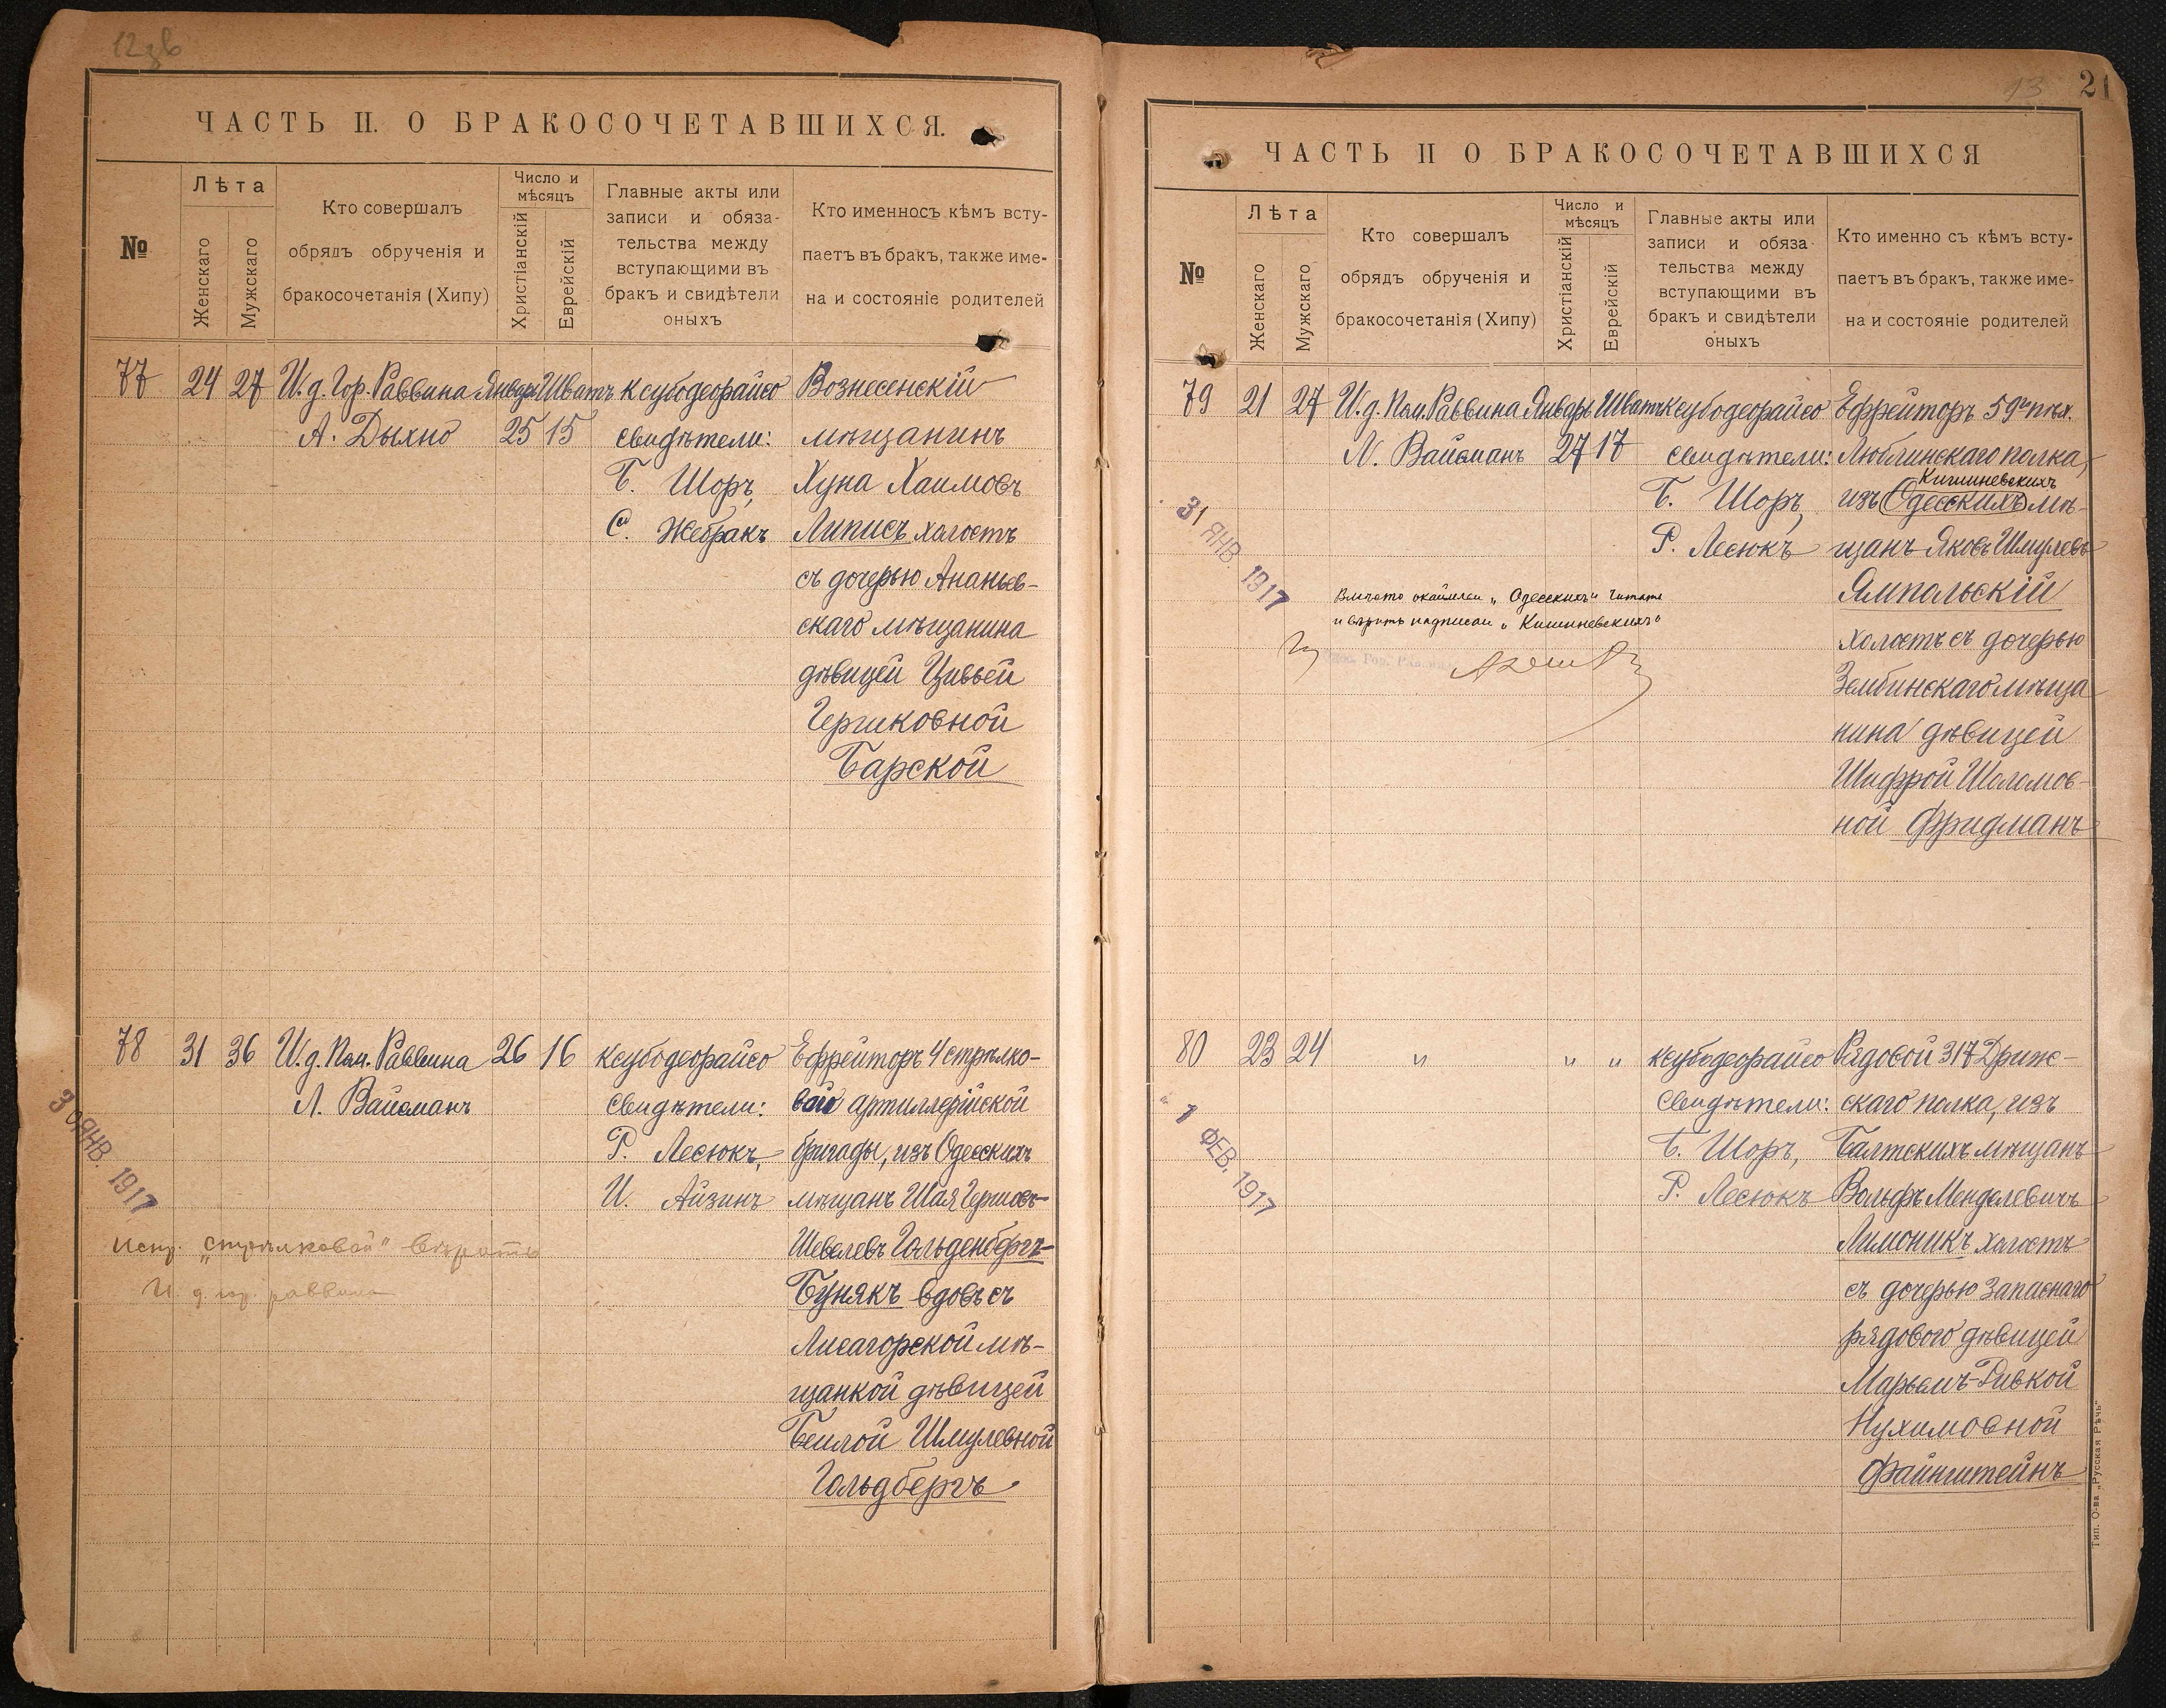 ЧАСТЬ II. О БРАКОСОЧЕТАВШИХСЯ.
№
Лѣта
Женскаго
Мужскаго
Кто совершалъ
обрядъ обрученія и
бракосочетанія (Хипу)
Число и
мѣсяцъ
Христіанскій
Еврейскій
Главные акты или
записи и обяза-
тельства между
вступающими въ
бракъ и свидѣтели
оныхъ
Кто именносъ кѣмъ всту-
паетъ въ бракъ, также име-
на и состояніе родителей
77 24 27 И.д. Гор. Раввина Январь Шватъ ксубодеорайсо Вознесенскій
А. Дыхно 25 15 свидѣтели: мѣщанинъ
Б. Шоръ, Хуна Хаимовъ
С. Жебракъ Липисъ холостъ
съ дочерью Ананьев-
скаго мѣщанина
дѣвицей Цивьей
Гершковной
Барской
78 31 36 И.д. Пом. Раввина 26 16 ксубодеорайсо Ефрейторъ 4 стрѣлко-
Л. Вайсманъ свидѣтели: вой артиллерійской
Р. Лесюкъ, бригады, изъ Одесскихъ
И. Айзинъ мѣщанъ Шая Гершовъ-
Шевелевъ Гольденбергъ-
Бунякъ вдовъ съ
Лисагорской мѣ-
щанкой дѣвицей
Бейлой Шмулевной
Гольдбергъ
30 ЯНВ. 1917
испр. „стрѣлковой" вѣрить
И. д. гор. раввина
13 21
ЧАСТЬ II О БРАКОСОЧЕТАВШИХСЯ
№
Лѣта
Женскаго
Мужскаго
Кто совершалъ
обрядъ обрученія и
бракосочетанія (Хипу)
Число и
мѣсяцъ
Христіанскій
Еврейскій
Главные акты или
записи и обяза
тельства между
вступающими въ
бракъ и свидѣтели
оныхъ
Кто именно съ кѣмъ всту-
паетъ въ бракъ, также име-
на и состояніе родителей
79 21 27 И.д. Пом. Раввина Январь Шватъ ксубодеорайсо Ефрейторъ 59го пѣх.
Л. Вайсманъ 27 17 свидѣтели: Люблинскаго полка,
Кишиневскихъ
Б. Шоръ, изъ Одесскихъ мѣ-
Р. Лесюкъ щанъ Яковъ Шмулевъ
Ямпольскій
холостъ съ дочерью
Зембинскаго мѣща
нина дѣвицей
Шифрой Шоломов-
ной Фридманъ
31 ЯНВ. 1917
Вмѣсто окаймлен „Одесскихъ" читать
и вѣрить надписан „Кишиневскихъ"
80 23 24 " " " ксубодеорайсо Рядовой 317 Дрис-
свидѣтели: скаго полка, изъ
Б. Шоръ, Балтскихъ мѣщанъ
Р. Лесюкъ Вольфъ Менделевичъ
Лимоникъ холостъ
съ дочерью запаснаго
рядового дѣвицей
Марьемъ-Ривкой
Нухимовной
Файнштейнъ
1 ФЕВ. 1917
Тип. О-ва „Русская Рѣчь"